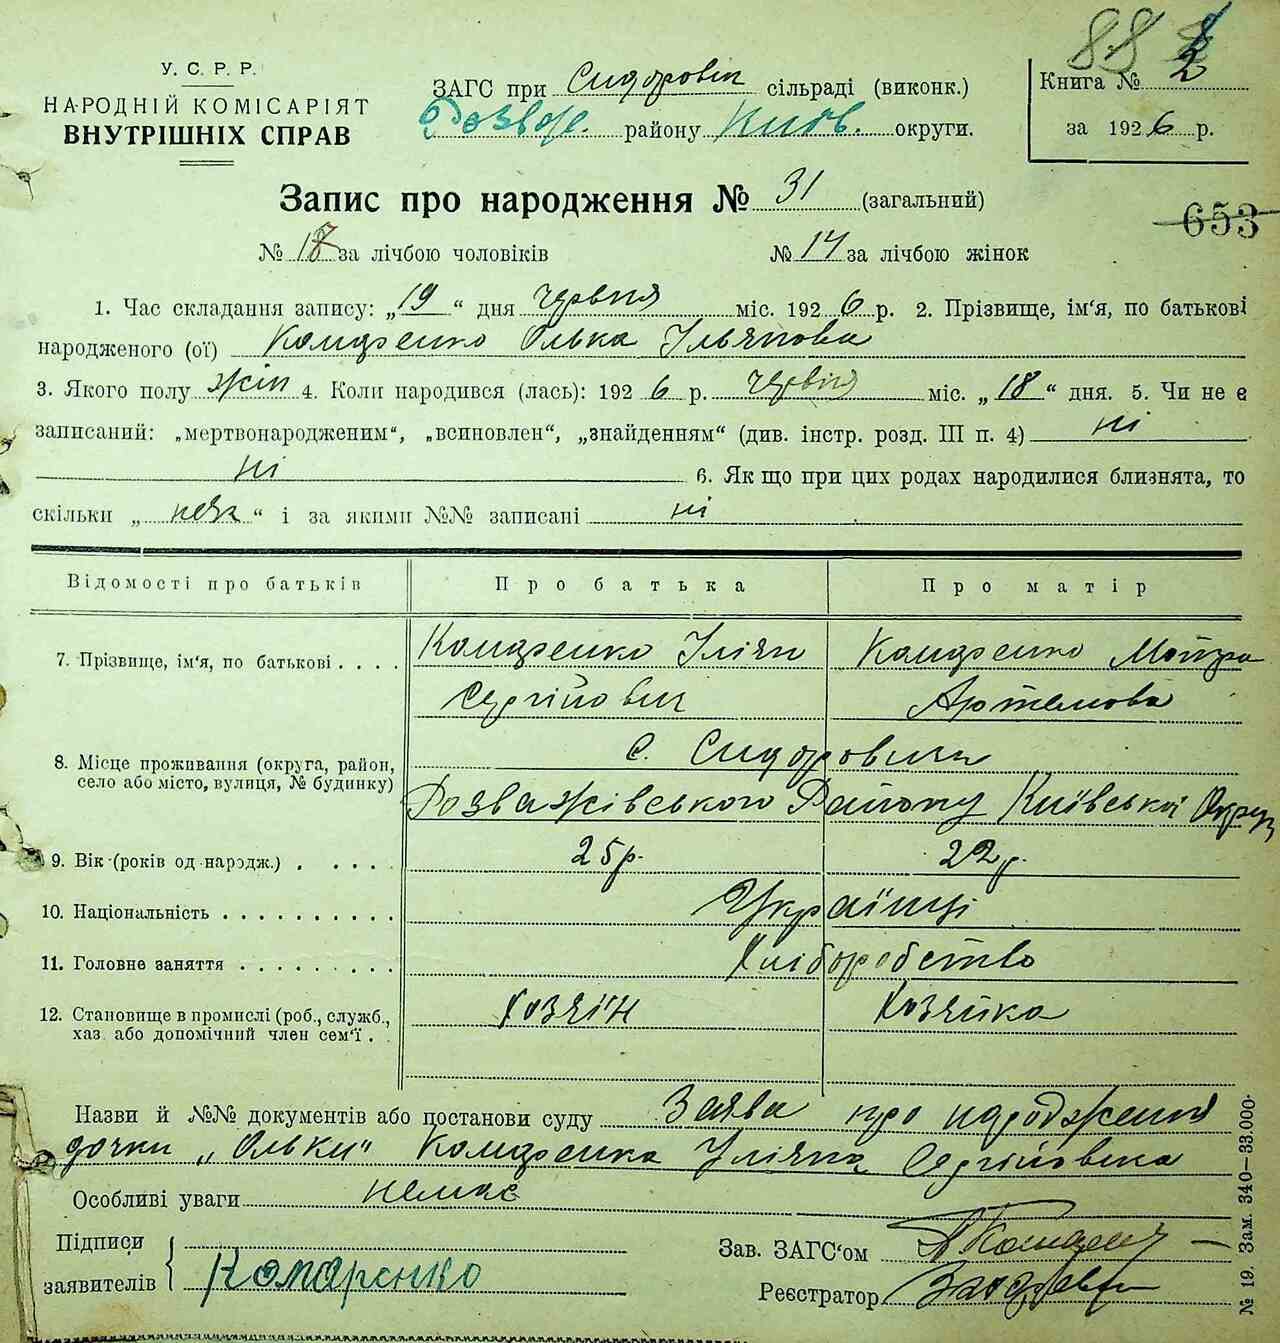 88
У. С. Р. Р.
НАРОДНІЙ КОМІСАРІЯТ
ВНУТРІШНІХ СПРАВ
ЗАГС при Сидорович сільраді (виконк.)
Розваж. району Київ. округи.
Книга № 2
за 1926 р.
Запис про народження № 31 (загальний)
653
№ 17 за лічбою чоловіків № 14 за лічбою жінок
1. Час складання запису: „19“ дня червня міс. 1926 р. 2. Прізвище, ім'я, по батькові
народженого (ої) Комаренко Олька Ільянова
3. Якого полу жін 4. Коли народився (лась): 1926 р. червня міс. „18“ дня. 5. Чи не є
записаний: „мертвонародженим“, „всиновлен“, „знайденням“ (див. інстр. розд. III п. 4) ні
ні 6. Як що при цих родах народилися близнята, то
скільки „ “ і за якими №№ записані ні
Відомості про батьків Про батька Про матір
7. Прізвище, ім'я, по батькові . . . . Комаренко Ілiян Комаренко Мотря
Сергійович Артемова
8. Місце проживання (округа, район, село або місто, вулиця, № будинку) с. Сидоровичи
Розважівського Району Київської Округи
9. Вік (років од народж.) . . . . . 25 р. 22 р.
10. Національність . . . . . . . . . . Українці
11. Головне заняття . . . . . . . . . Хліборобство
12. Становище в промислі (роб., служб., хаз. або допомічний член сем'ї . . Хозяїн Хозяйка
Назви й №№ документів або постанови суду Заява про народження
дочки „Ольки“ Комаренка Іліяна Сергійовича
Особливі уваги немає
Підписи
заявителів Комаренко
Зав. ЗАГС'ом
Реєстратор
№ 19. Зам. 340—33.000.